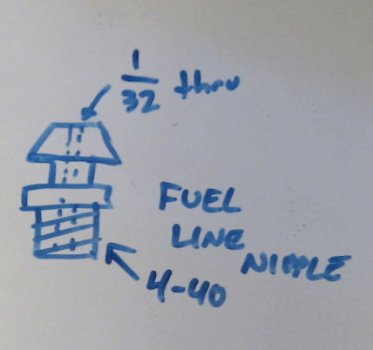 1/32 thru
FUEL
LINE
NIPPLE
4-40